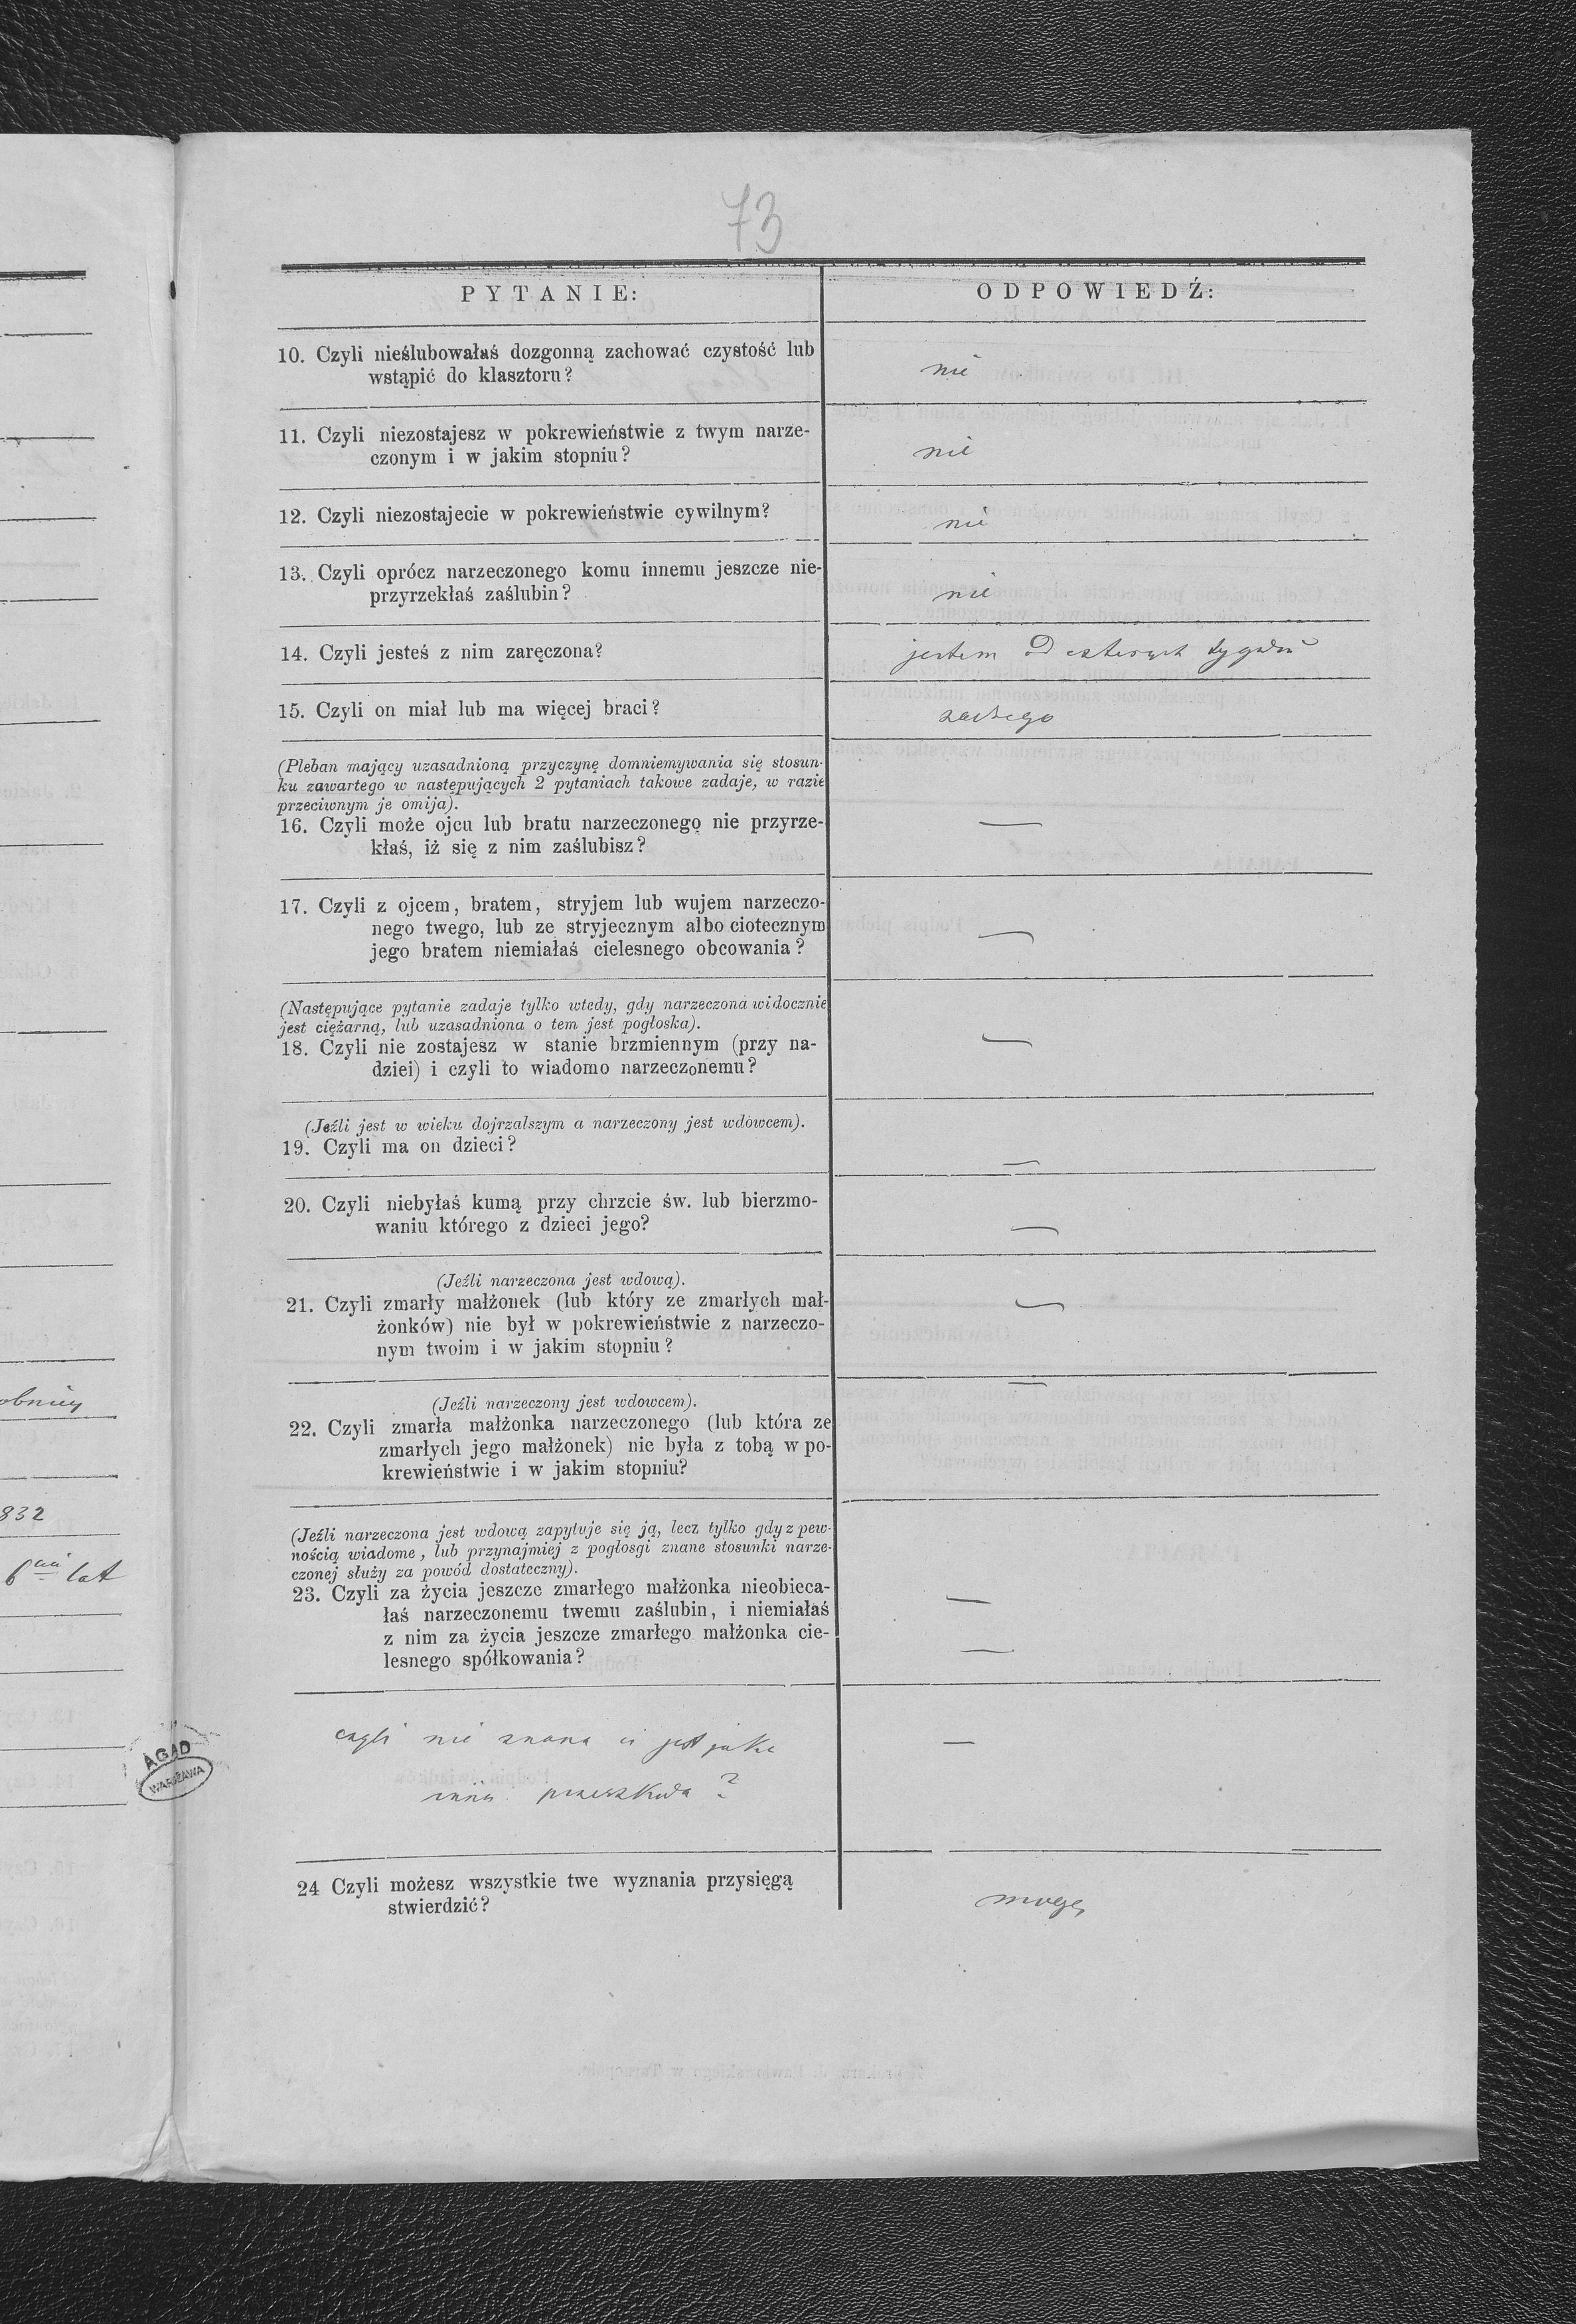 73
PYTANIE:
ODPOWIEDŹ:
10. Czyli nieślubowałaś dozgonną zachować czystość lub
wstąpić do klasztoru?
nie
11. Czyli niezostajesz w pokrewieństwie z twym narze-
czonym i w jakim stopniu?
nie
12. Czyli niezostajecie w pokrewieństwie cywilnym?
nie
13. Czyli oprócz narzeczonego komu innemu jeszcze nie-
przyrzekłaś zaślubin?
nie
14. Czyli jesteś z nim zaręczona?
jestem od czterech tygodni
15. Czyli on miał lub ma więcej braci?
żadnego
(Pleban mający uzasadnioną przyczynę domniemywania się stosun-
ku zawartego w następujących 2 pytaniach takowe zadaje, w razie
przeciwnym je omija).
16. Czyli może ojcu lub bratu narzeczonego nie przyrze-
kłaś, iż się z nim zaślubisz?
—
17. Czyli z ojcem, bratem, stryjem lub wujem narzeczo-
nego twego, lub ze stryjecznym albo ciotecznym
jego bratem niemiałaś cielesnego obcowania?
—
(Następujące pytanie zadaje tylko wtedy, gdy narzeczona widocznie
jest ciężarną, lub uzasadniona o tem jest pogłoska).
18. Czyli nie zostajesz w stanie brzmiennym (przy na-
dziei) i czyli to wiadomo narzeczonemu?
—
(Jeźli jest w wieku dojrzalszym a narzeczony jest wdowcem).
19. Czyli ma on dzieci?
—
20. Czyli niebyłaś kumą przy chrzcie św. lub bierzmo-
waniu którego z dzieci jego?
—
(Jeźli narzeczona jest wdową).
21. Czyli zmarły małżonek (lub który ze zmarłych mał-
żonków) nie był w pokrewieństwie z narzeczo-
nym twoim i w jakim stopniu?
—
(Jeźli narzeczony jest wdowcem).
22. Czyli zmarła małżonka narzeczonego (lub która ze
zmarłych jego małżonek) nie była z tobą w po-
krewieństwie i w jakim stopniu?
—
(Jeźli narzeczona jest wdową zapytuje się ją, lecz tylko gdy z pew-
nością wiadome, lub przynajmiej z pogłosgi znane stosunki narze-
czonej służy za powód dostateczny).
23. Czyli za życia jeszcze zmarłego małżonka nieobieca-
łaś narzeczonemu twemu zaślubin, i niemiałaś
z nim za życia jeszcze zmarłego małżonka cie-
lesnego spółkowania?
—
—
czyli nie znana ci jest jaka
inna przeszkoda?
—
24 Czyli możesz wszystkie twe wyznania przysięgą
stwierdzić?
mogę
832
lat
AGAD
WARSZAWA